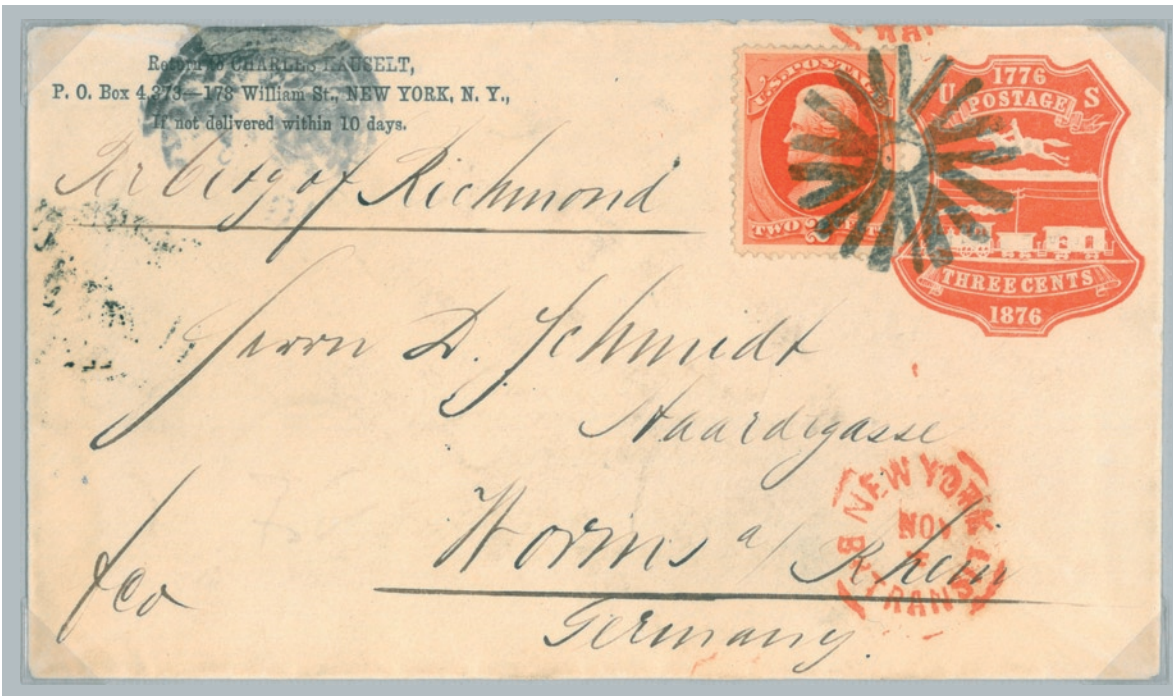 Return to CHARLES KAUSELT,
P. O. Box 4,373—178 William St., NEW YORK, N. Y.,
If not delivered within 10 days.
Per City of Richmond
U.S. POSTAGE
TWO 2 CENTS
1776
U POSTAGE S
THREE CENTS
1876
Herrn D. Schmidt
Haardtgasse
Worms a/ Rhein
Germany.
fco
NEW YORK
NOV
BR TRANSIT
TRAN